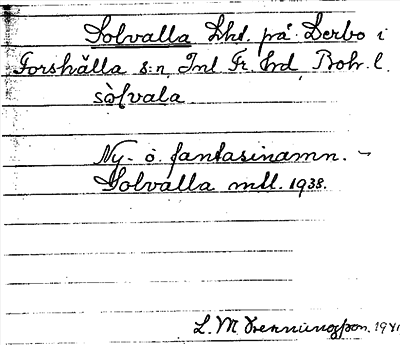 Solvalla Lht. på Lerbo i
Forshälla s:n Inl. Fr. hd, Boh. l.
sòlvala
Ny- o. fantasinamn. –
Solvalla mtl. 1938.
L. M. Svenningsson. 1941